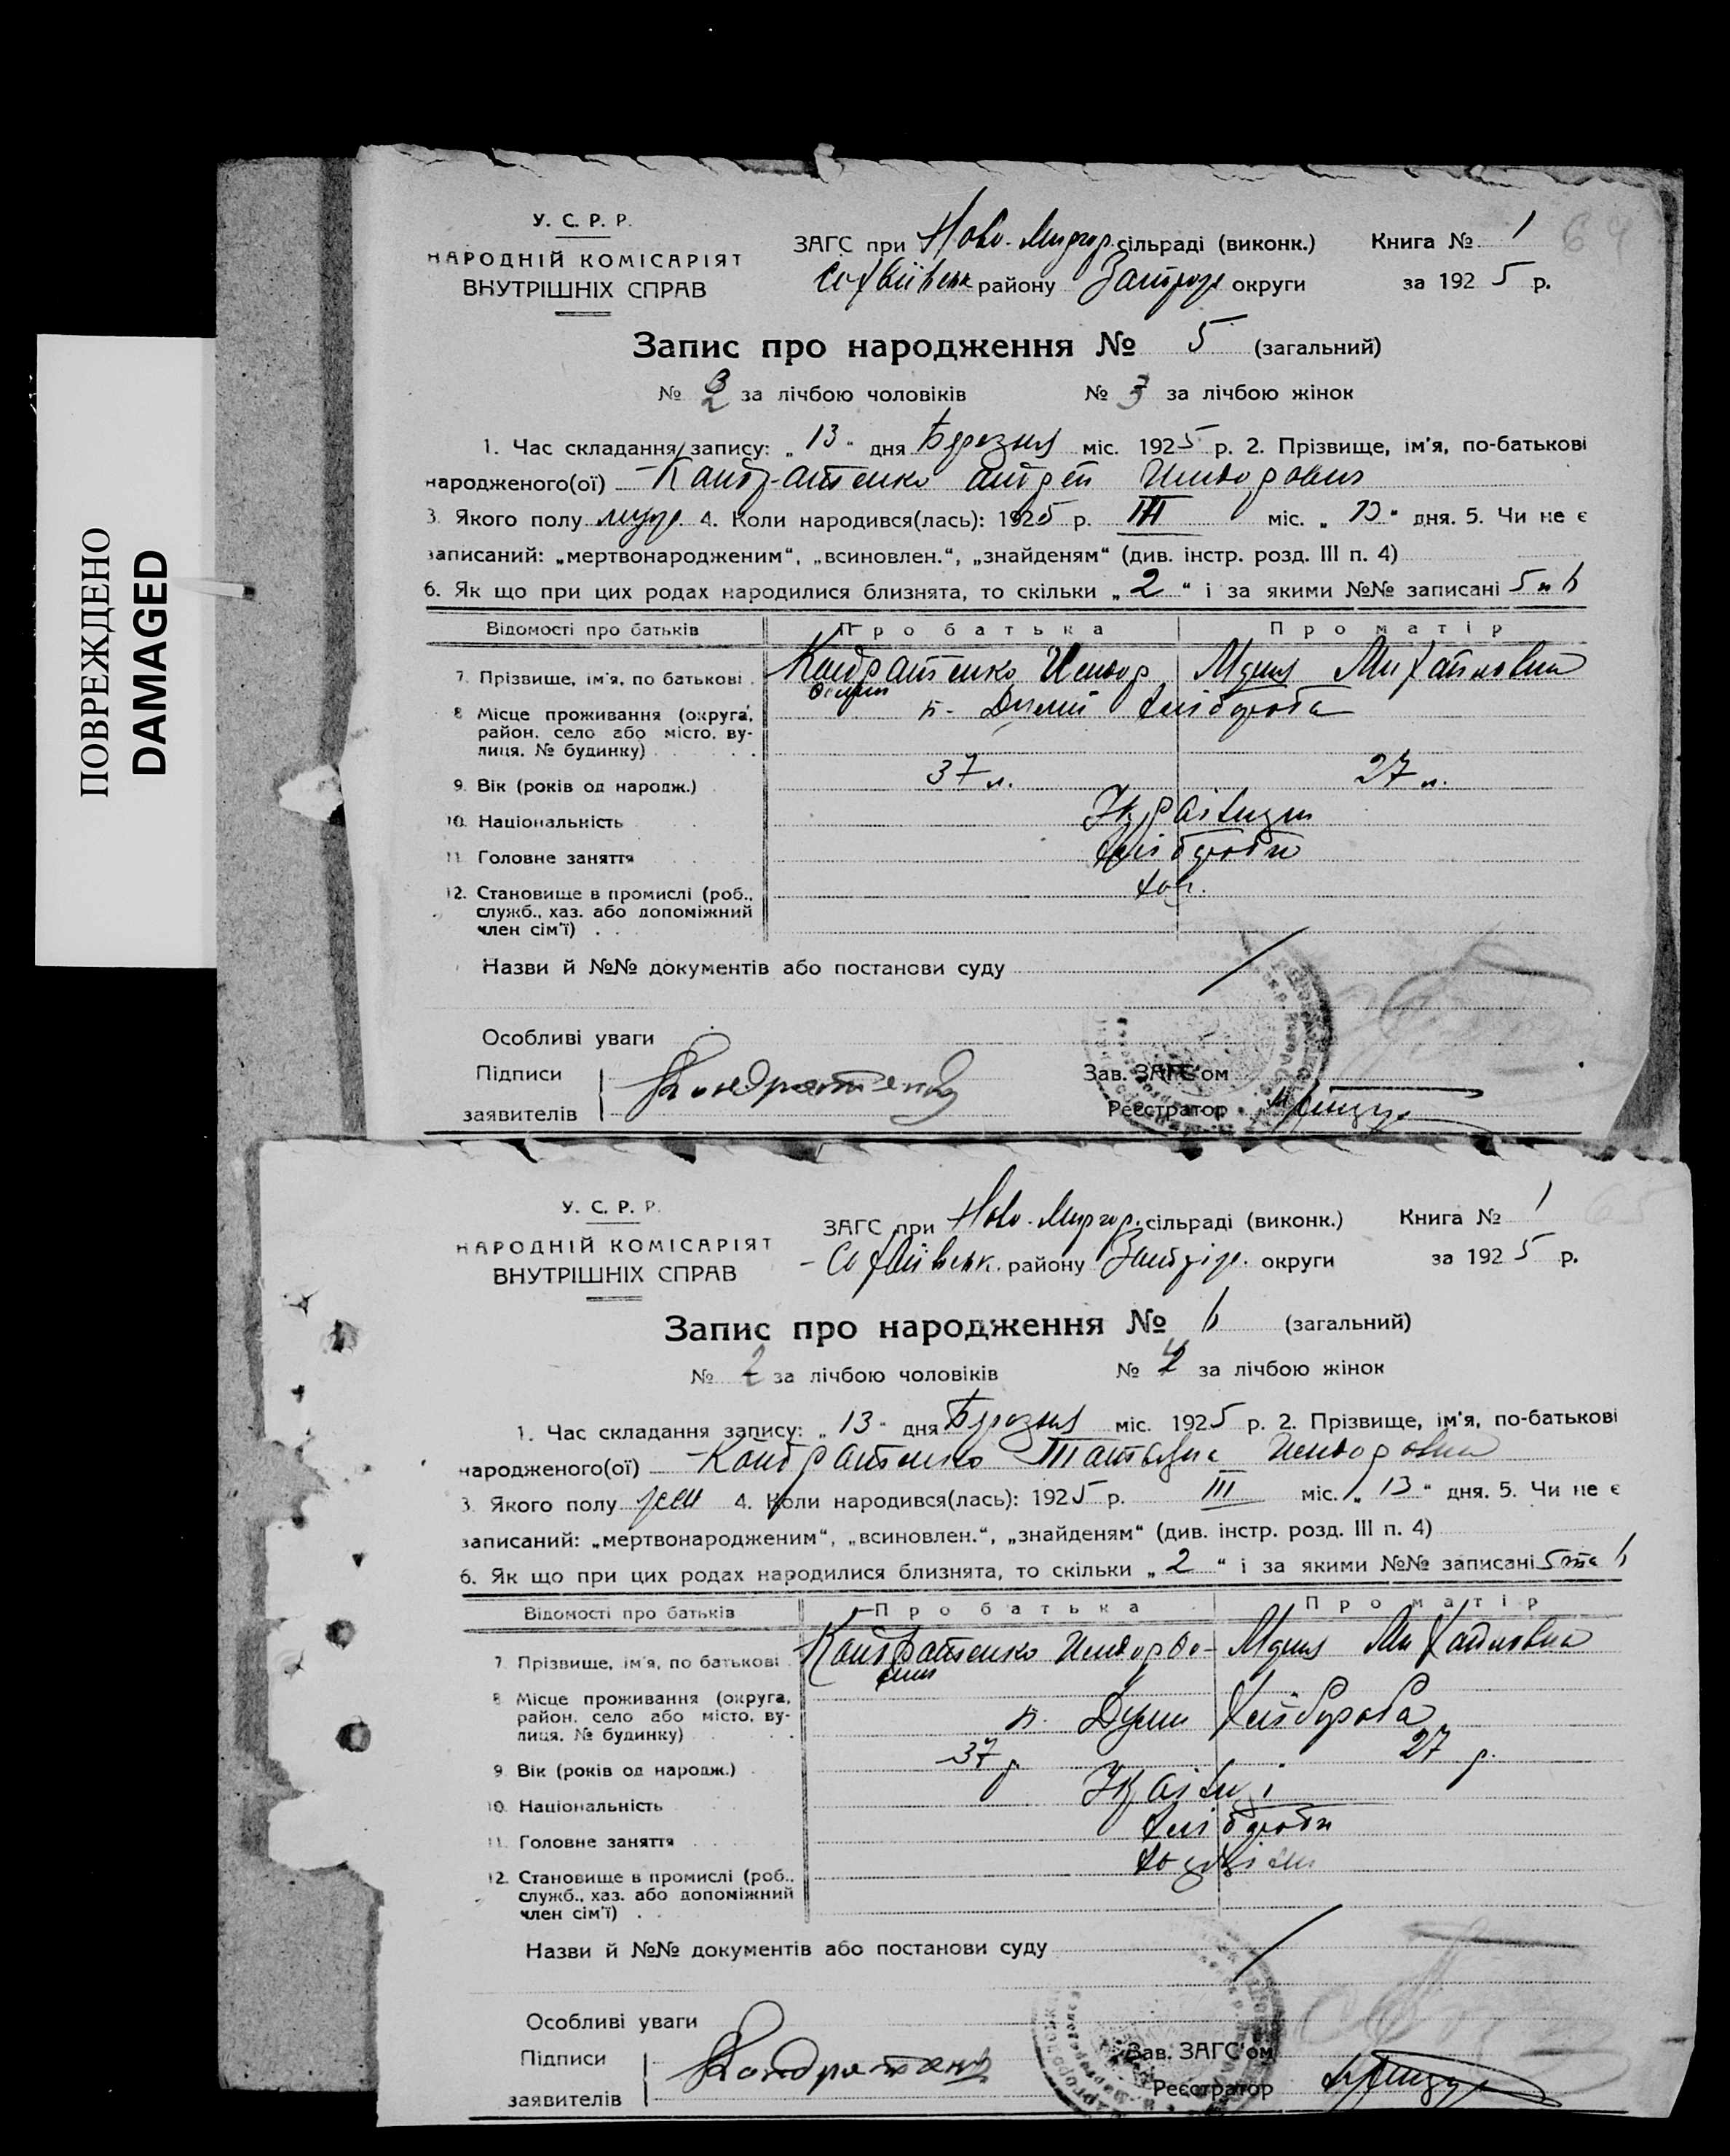 ПОВРЕЖДЕНО
DAMAGED
У. С. Р. Р.
НАРОДНІЙ КОМІСАРІЯТ
ВНУТРІШНІХ СПРАВ
ЗАГС при Ново-Миргор. сільраді (виконк.) Книга № 1 64
Софіївськ району Запоріж округи за 1925 р.
Запис про народження № 5 (загальний)
№ за лічбою чоловіків № 3 за лічбою жінок
1. Час складання запису: „13“ дня Березня міс. 1925 р. 2. Прізвище, ім'я, по-батькові
народженого(ої) Кондратенко Андрей
3. Якого полу муж. 4. Коли народився(лась): 1925 р. III міс. „13“ дня. 5. Чи не є
записаний: „мертвонародженим“, „всиновлен.“, „знайденям“ (див. інстр. розд. III п. 4)
6. Як що при цих родах народилися близнята, то скільки „2“ і за якими №№ записані 5 и 6
Відомості про батьків Про батька Про матір
7. Прізвище, ім'я, по батькові Кондратенко Михайловна
8 Місце проживання (округа, район, село або місто, вулиця, № будинку)
9. Вік (років од народж.) 37 л. 27 л.
10. Національність
11 Головне заняття хлібороби
12. Становище в промислі (роб., служб., хаз. або допоміжний член сім'ї) хаз.
Назви й №№ документів або постанови суду
Особливі уваги
Підписи
заявителів Кондратенко
Зав. ЗАГС'ом
Реєстратор
У. С. Р. Р.
НАРОДНІЙ КОМІСАРІЯТ
ВНУТРІШНІХ СПРАВ
ЗАГС при Ново-Миргор. сільраді (виконк.) Книга № 1 65
Софіївськ. району Запоріж. округи за 1925 р.
Запис про народження № 6 (загальний)
№ 2 за лічбою чоловіків № за лічбою жінок
1. Час складання запису: „13“ дня Березня міс. 1925 р. 2. Прізвище, ім'я, по-батькові
народженого(ої) Кондратенко Татьяна
3. Якого полу жен 4. Коли народився(лась): 1925 р. III міс. „13“ дня. 5. Чи не є
записаний: „мертвонародженим“, „всиновлен.“, „знайденям“ (див. інстр. розд. III п. 4)
6. Як що при цих родах народилися близнята, то скільки „2“ і за якими №№ записані 5 та 6
Відомості про батьків Про батька Про матір
7. Прізвище, ім'я, по батькові Кондратенко Михайловна
8 Місце проживання (округа, район, село або місто, вулиця, № будинку)
9. Вік (років од народж.) 37 р. 27 р.
10. Національність
11. Головне заняття хлібороби
12. Становище в промислі (роб., служб., хаз. або допоміжний член сім'ї)
Назви й №№ документів або постанови суду
Особливі уваги
Підписи
заявителів Кондратенко
Зав. ЗАГС'ом
Реєстратор